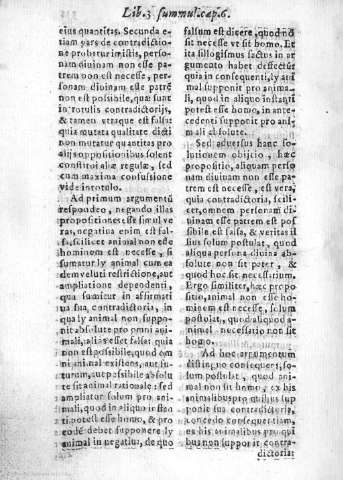 Lib. 3 summul. cap. 6.
eius quantitas. Secunda e-
tiam pars de contradictio-
ne probatur istis, perso-
nam diuinam non esse pa-
trem non est necesse, perso-
nam diuinam esse patrem
non est possibile, quæ sunt
in rotulis contradictorijs,
& tamen vtraque est falsa:
quia mutata qualitate dicti
non mutatur quantitas pro
alijs suppositionibus solent
constitui aliæ regulæ, sed
cum maxima confusione
vide in rotulo.
Ad primum argumentū
respondeo, negando illas
propositiones esse simul ve
ras, negatiua enim est fal-
sa, scilicet animal non esse
hominem est necesse, si
sumatur ly animal cum ea
dem veluti restrictione, aut
ampliatione dependenti,
qua sumitur in affirmati
ua sua, contradictoria, in
qua ly animal non, suppo-
nit absolute pro omni ani-
mali, alias esset falsa: quia
non est possibile, quod om
ni animal existens, aut fu-
turum, aut possibile absolu
te sit animal rationale: sed
ampliatur solum pro ani-
mali, quod in aliquo insta
ti potest esse homo, & pro
eodē debet supponere ly
animal in negatiua, de quo
falsum est dicere, quod nō
sit necesse vt sit homo. Et
ita sillogismus factus in ar
gumento habet deffectū
quia in consequenti, ly ani
mal supponit pro animali,
quod in aliquo instanti
potest esse homo, in ante-
cedenti supponit pro ani
mali absolute.
Sed aduersus hanc so-
lutionem obijcio, hæc
propositio, aliquam perso
nam diuinam non esse pa-
trem est necesse, est vera,
quia contradictoria, scili-
cet, omnem personam di-
uinam esse patrem est pos
sibile, est falsa, & veritas il
lius solum postulat, quod
aliqua persona diuina ab-
solute non sit pater, &
quod hoc sit necessarium.
Ergo similiter, hæc propo
sitio, animal non esse ho-
minem est necesse, solum
postulat, quod aliquod
animal necessario non sit
homo.
Ad hoc argumentum
distinguo consequens, so-
lum postulat, quod ani-
mal non sit homo, ex his
animalibus pro quibus sup
ponit sua contradictoria,
concedo consequentiam,
ex his animalibus pro qui
bus non supponit contra-
dictoria